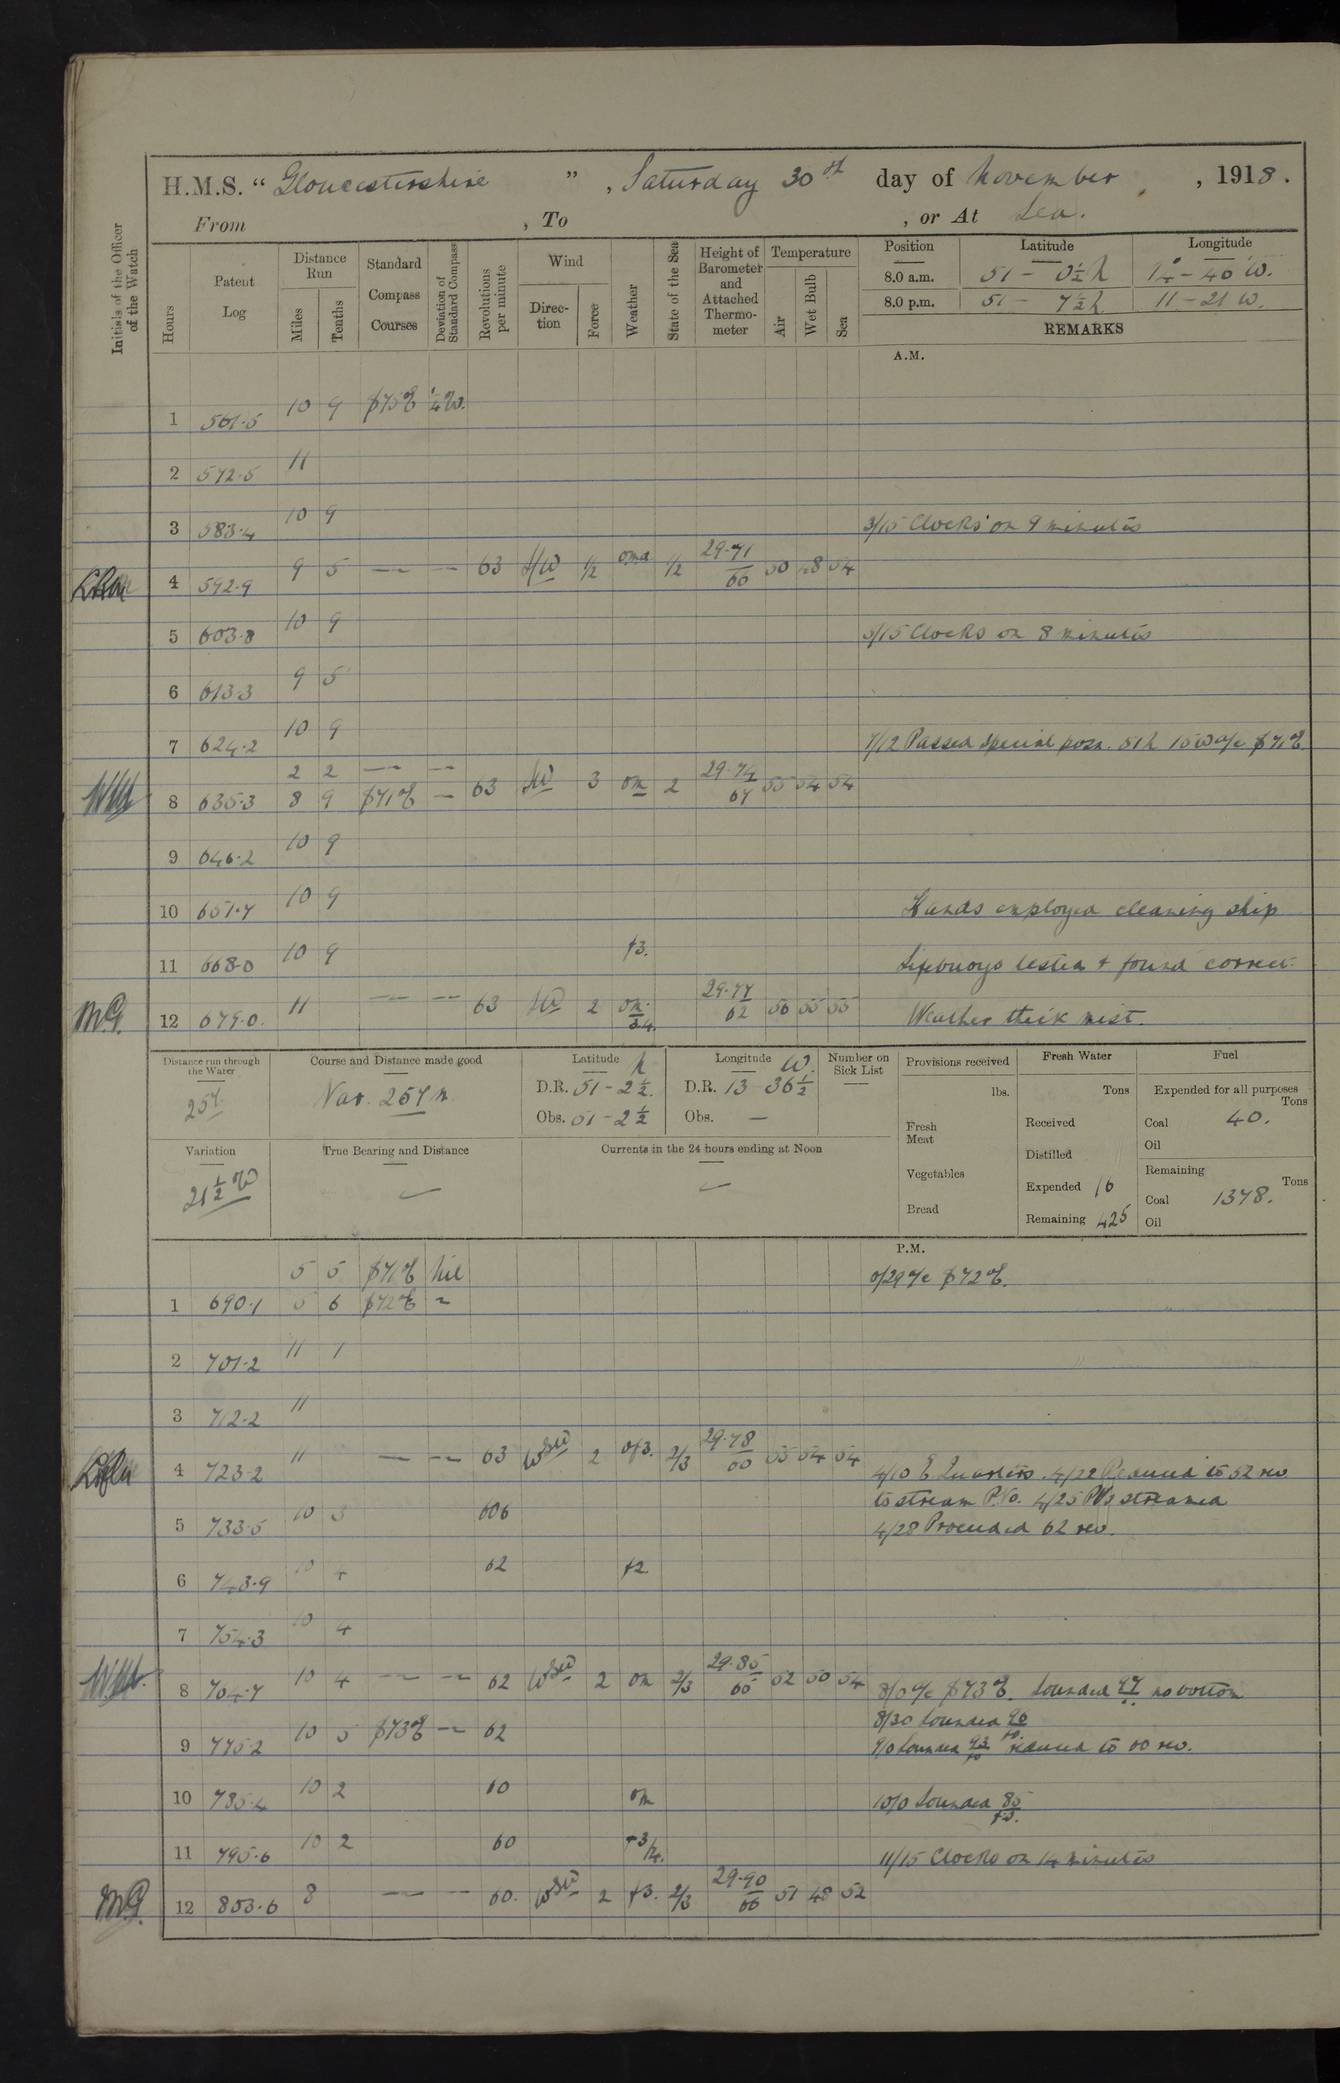 H.M.S. “ Gloucestershire ” , Saturday 30th day of November , 1918 .
From , To , or At Sea .
Initials of the Officer of the Watch
Hours
Patent Log
Distance Run
Miles
Tenths
Standard Compass Courses
Deviation of Standard Compass
Revolutions per minute
Wind
Direction
Force
Weather
State of the Sea
Height of Barometer and Attached Thermometer
Temperature
Air
Wet Bulb
Sea
Position Latitude Longitude
8.0 a.m. 51 - 0½ N 14° - 40' W.
8.0 p.m. 51 - 7½ N 11 - 21 W.
REMARKS
A.M.
1 561.5 10 9 S 75 E ¼ W.
2 572.5 11
3 583.4 10 9 3/15 Clocks on 9 minutes
4 592.9 9 5 — — 63 SW 1/2 omd 1/2 29.71/66 50 48 54
5 603.8 10 9 5/15 Clocks on 8 minutes
6 613.3 9 5
7 624.2 10 9 7/12 Passed Special posn. 51 N 15 W a/c S 71 E
2 2 — —
8 635.3 8 9 S 71 E — 63 SW 3 om 2 29.74/67 55 54 54
9 646.2 10 9
10 657.7 10 9 Hands employed cleaning ship
11 668.0 10 9 f3. Lifebuoys tested & found correct.
M.G. 12 679.0. 11 — — 63 SW 2 om. 3.4. 29.77/62 56 55 55 Weather thick mist.
Distance run through the Water
257.
Course and Distance made good
Var. 257 m
Latitude N
D.R. 51 - 2½.
Obs. 51 - 2½
Longitude W.
D.R. 13 36½
Obs. —
Number on Sick List
Provisions received
lbs.
Fresh Meat
Vegetables
Bread
Fresh Water
Tons
Received
Distilled
Expended 16
Remaining 425
Fuel
Expended for all purposes
Tons
Coal 40.
Oil
Remaining
Tons
Coal 1378.
Oil
Variation
21½ W
True Bearing and Distance
Currents in the 24 hours ending at Noon
P.M.
5 5 S 71 E Nil 0/29 a/c S 72 E.
1 690.1 5 6 S 72 E ~
2 701.2 11 1
3 712.2 11
4 723.2 11 — — 63 WSW 2 of3. 2/3 29.78/60 55 54 54 4/10 E. Quarters. 4/22 Reduced to 52 rev
to stream P.Vs. 4/25 PVs streamed
5 733.5 10 3 606 4/28 Proceeded 62 rev.
6 743.9 10 4 62 f2.
7 754.3 10 4
8 764.7 10 4 — — 62 WSW 2 om 2/3 29.85/65 52 50 54 8/0 a/c S 73 E. Sounded 97 no bottom
8/30 Sounded 90
9 775.2 10 5 S 73 E — 62 9/0 Sounded 93 reduced to 60 rev.
10 785.4 10 2 60 om 10/0 Sounded 85
11 795.6 10 2 60 f3/4. 11/15 Clocks on 14 minutes
M.G. 12 803.6 8 — — 60. WSW 2 f3. 2/3 29.90/66 51 48 52